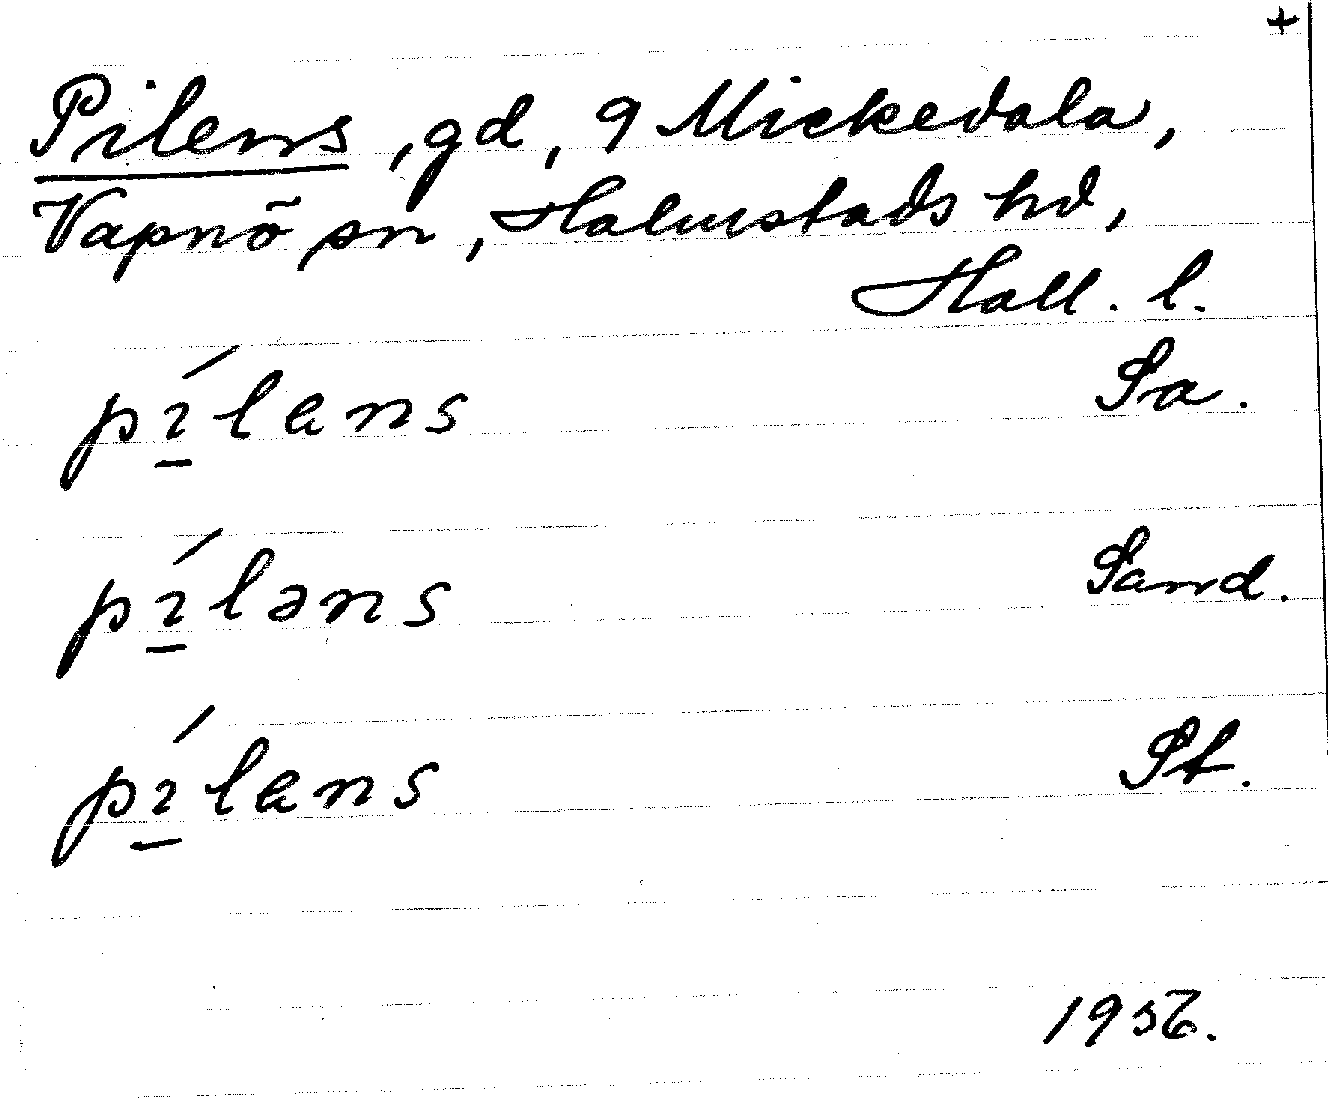 +
Pilens, gd, 9 Mickedala,
Vapnö sn, Halmstads hd,
Hall. l.
pí̱lens Sa.
pí̱ləns Sand.
pí̱lens St.
1956.